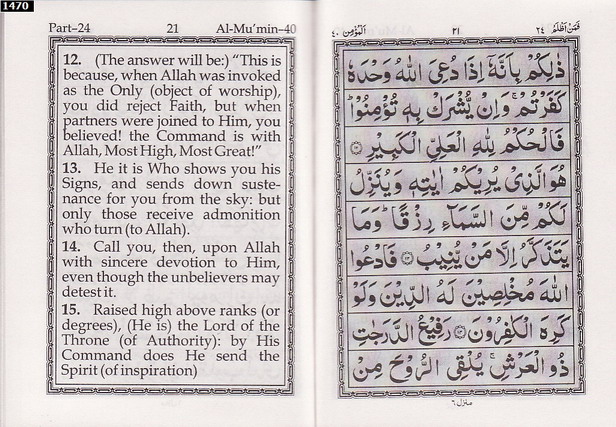 1470
Part–24 21 Al-Mu’min–40
12. (The answer will be:) “This is
because, when Allah was invoked
as the Only (object of worship),
you did reject Faith, but when
partners were joined to Him, you
believed! the Command is with
Allah, Most High, Most Great!”
13. He it is Who shows you his
Signs, and sends down suste-
nance for you from the sky: but
only those receive admonition
who turn (to Allah).
14. Call you, then, upon Allah
with sincere devotion to Him,
even though the unbelievers may
detest it.
15. Raised high above ranks (or
degrees), (He is) the Lord of the
Throne (of Authority): by His
Command does He send the
Spirit (of inspiration)
فَمَنْ اَظْلَمُ ٢٤ ٢١ اَلْمُؤْمِن ٤٠
ذٰلِكُمْ بِاَنَّهٗۤ اِذَا دُعِيَ اللّٰهُ وَحْدَهٗ
كَفَرْتُمْ ۚ وَاِنْ يُّشْرَكْ بِهٖ تُؤْمِنُوْا ؕ
فَالْحُكْمُ لِلّٰهِ الْعَلِيِّ الْكَبِيْرِ ۝١٢
هُوَ الَّذِيْ يُرِيْكُمْ اٰيٰتِهٖ وَيُنَزِّلُ
لَكُمْ مِّنَ السَّمَآءِ رِزْقًا ؕ وَمَا
يَتَذَكَّرُ اِلَّا مَنْ يُّنِيْبُ ۝١٣ فَادْعُوا
اللّٰهَ مُخْلِصِيْنَ لَهُ الدِّيْنَ وَلَوْ
كَرِهَ الْكٰفِرُوْنَ ۝١٤ رَفِيْعُ الدَّرَجٰتِ
ذُو الْعَرْشِ ۚ يُلْقِي الرُّوْحَ مِنْ
منزل ٦